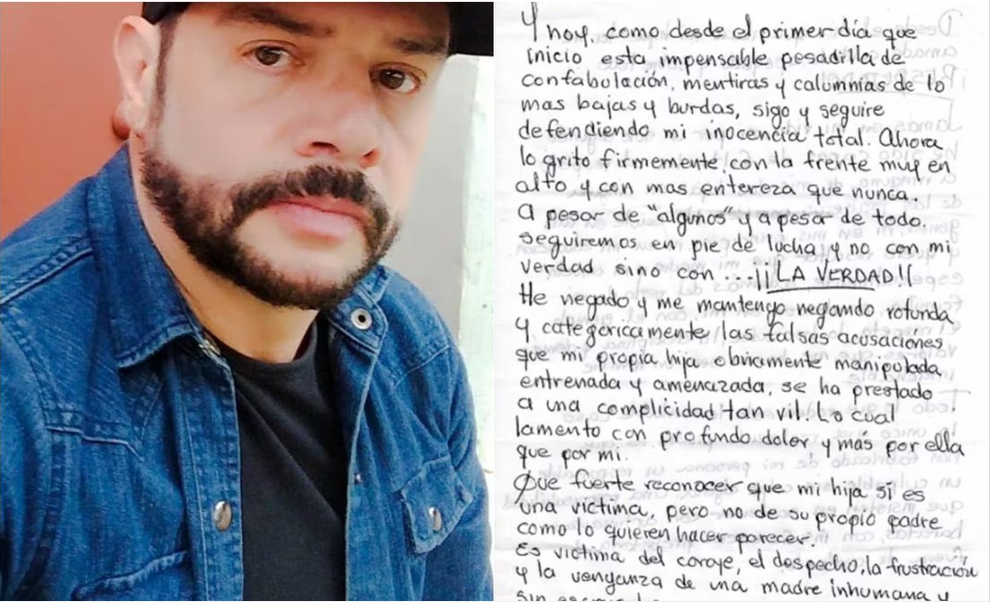 Y hoy, como desde el primer día que
inicio esta impensable pesadilla de
confabulación, mentiras y calumnias de lo
mas bajas y burdas, sigo y seguire
defendiendo mi inocencia total. Ahora
lo grito firmemente, con la frente muy en
alto y con mas entereza que nunca.
A pesar de "algunos" y a pesar de todo.
seguiremos en pie de lucha y no con mi
verdad sino con...¡¡LA VERDAD!!
He negado y me mantengo negando rotunda
y categóricamente las falsas acusaciónes
que mi propia hija obviamente manipulada
entrenada y amenazada, se ha prestado
a una complicidad tan vil. Lo cual
lamento con profundo dolor y más por ella
que por mi.
Que fuerte reconocer que mi hija si es
una victima, pero no de su propio padre
como lo quieren hacer parecer.
Es victima del coraje, el despecho, la frustración
y la venganza de una madre inhumana y
sin